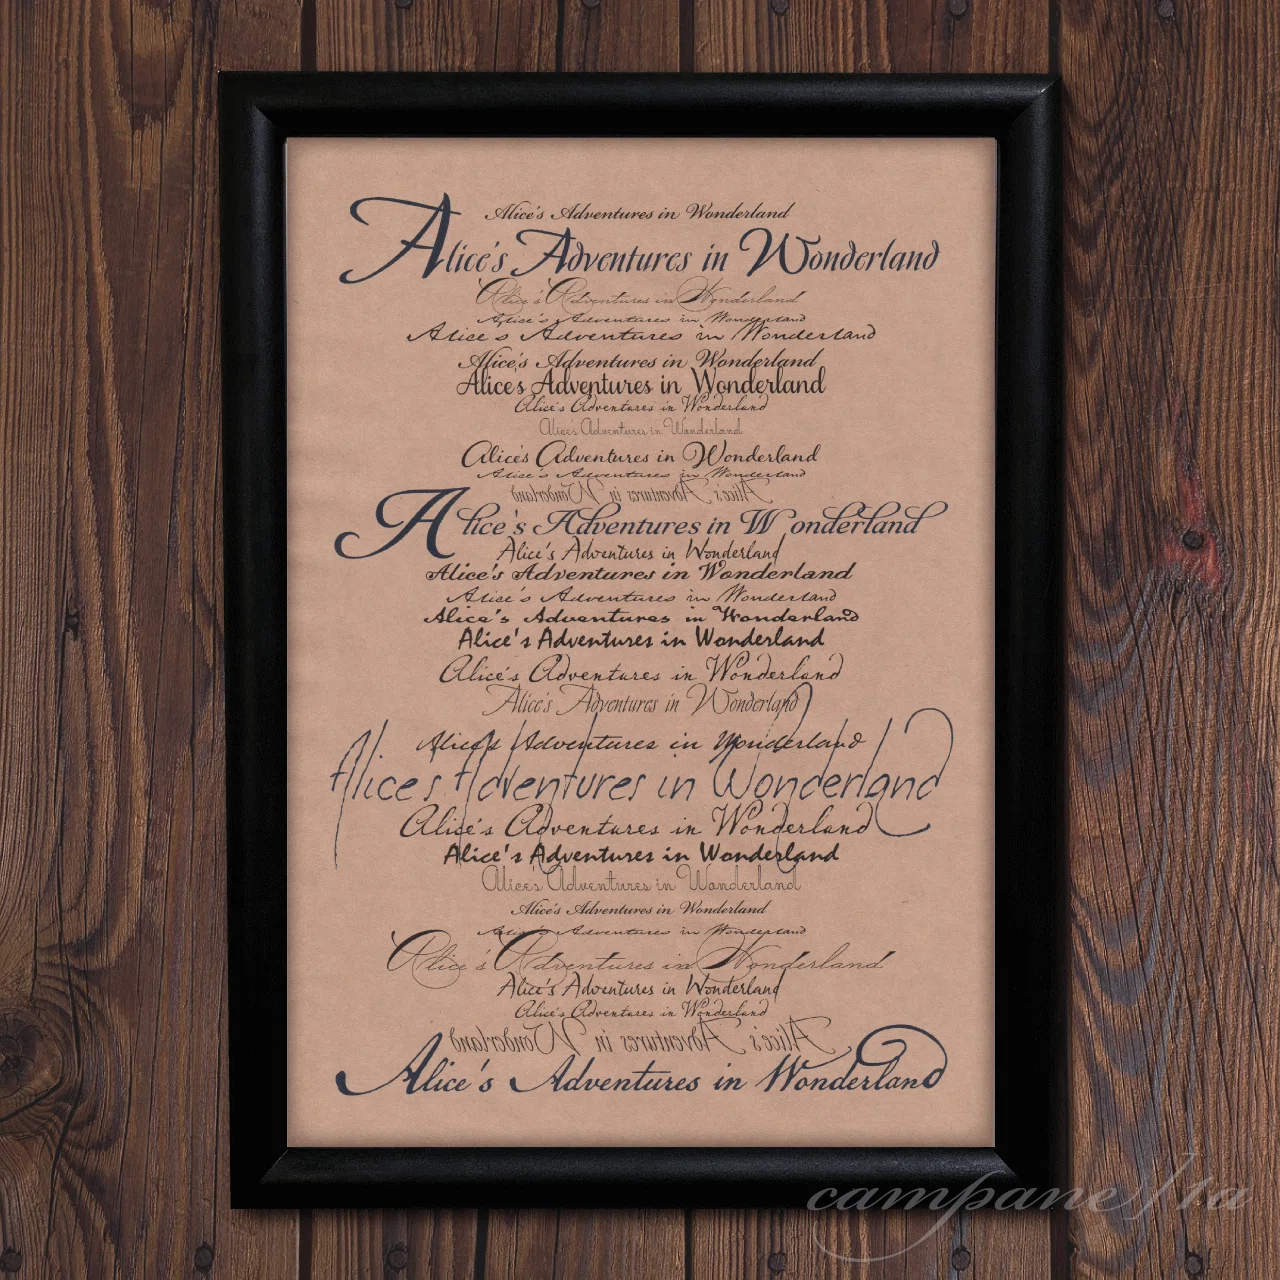 Alice's Adventures in Wonderland
Alice's Adventures in Wonderland
Alice's Adventures in Wonderland
Alice's Adventures in Wonderland
Alice's Adventures in Wonderland
Alice's Adventures in Wonderland
Alice's Adventures in Wonderland
Alice's Adventures in Wonderland
Alice's Adventures in Wonderland
Alice's Adventures in Wonderland
Alice's Adventures in Wonderland
Alice's Adventures in Wonderland
Alice's Adventures in Wonderland
Alice's Adventures in Wonderland
Alice's Adventures in Wonderland
Alice's Adventures in Wonderland
Alice's Adventures in Wonderland
Alice's Adventures in Wonderland
Alice's Adventures in Wonderland
Alice's Adventures in Wonderland
Alice's Adventures in Wonderland
Alice's Adventures in Wonderland
Alice's Adventures in Wonderland
Alice's Adventures in Wonderland
Alice's Adventures in Wonderland
Alice's Adventures in Wonderland
Alice's Adventures in Wonderland
Alice's Adventures in Wonderland
Alice's Adventures in Wonderland
Alice's Adventures in Wonderland
Alice's Adventures in Wonderland
Alice's Adventures in Wonderland